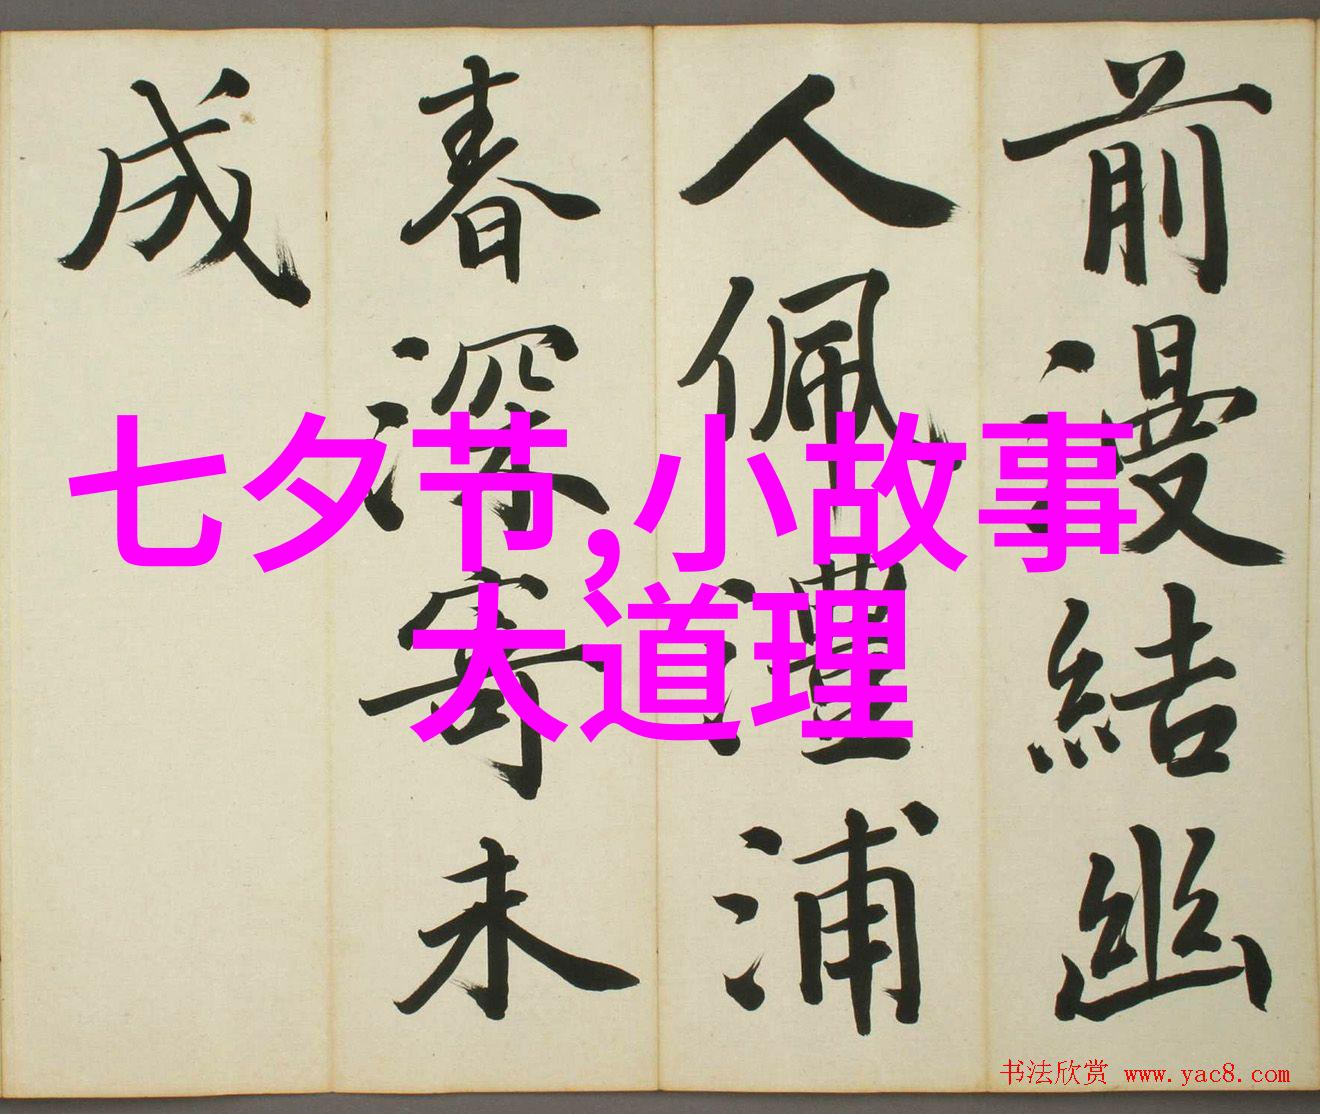 前漫結幽
人佩澧浦
春深寄未
成
七夕节,小故事
大道理
书法欣赏 www.yac8.com